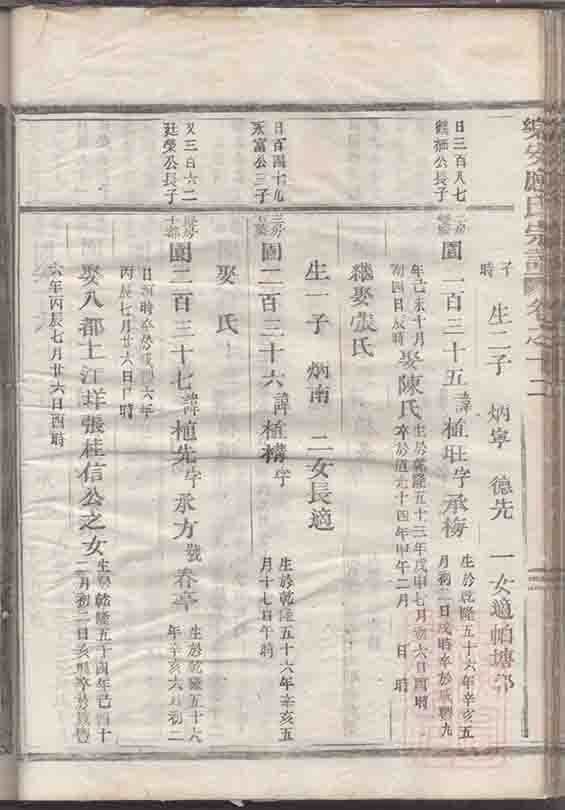 時
生二子 炳寧 德先 一女適帕塘
日三百八七
公長子
圍二百三十五諱植旺字承梅
生於乾隆五十六年辛亥五
月初二日戌時卒於咸豐九
年己未十月
初四日辰時
娶陳氏
生於乾隆五十三年戊申七月初六日酉時
卒於道光十四年甲午二月 日 時
繼娶張氏
生一子 炳南 二女長適
日百四十九
永富公三子
圍二百三十六諱植構字
生於乾隆五十六年辛亥五
月十七日午時
娶 氏
又三百六二
廷榮公長子
圍二百三十七諱植先字承方號春亭
生於乾隆五十六
年辛亥六月初二
日 時卒於咸豐六年
丙辰七月廿六日 時
娶八都上江祥張桂信公之女
生於乾隆五十四年己酉十
二月初二日亥時卒於咸豐
六年丙辰七月廿六日酉時